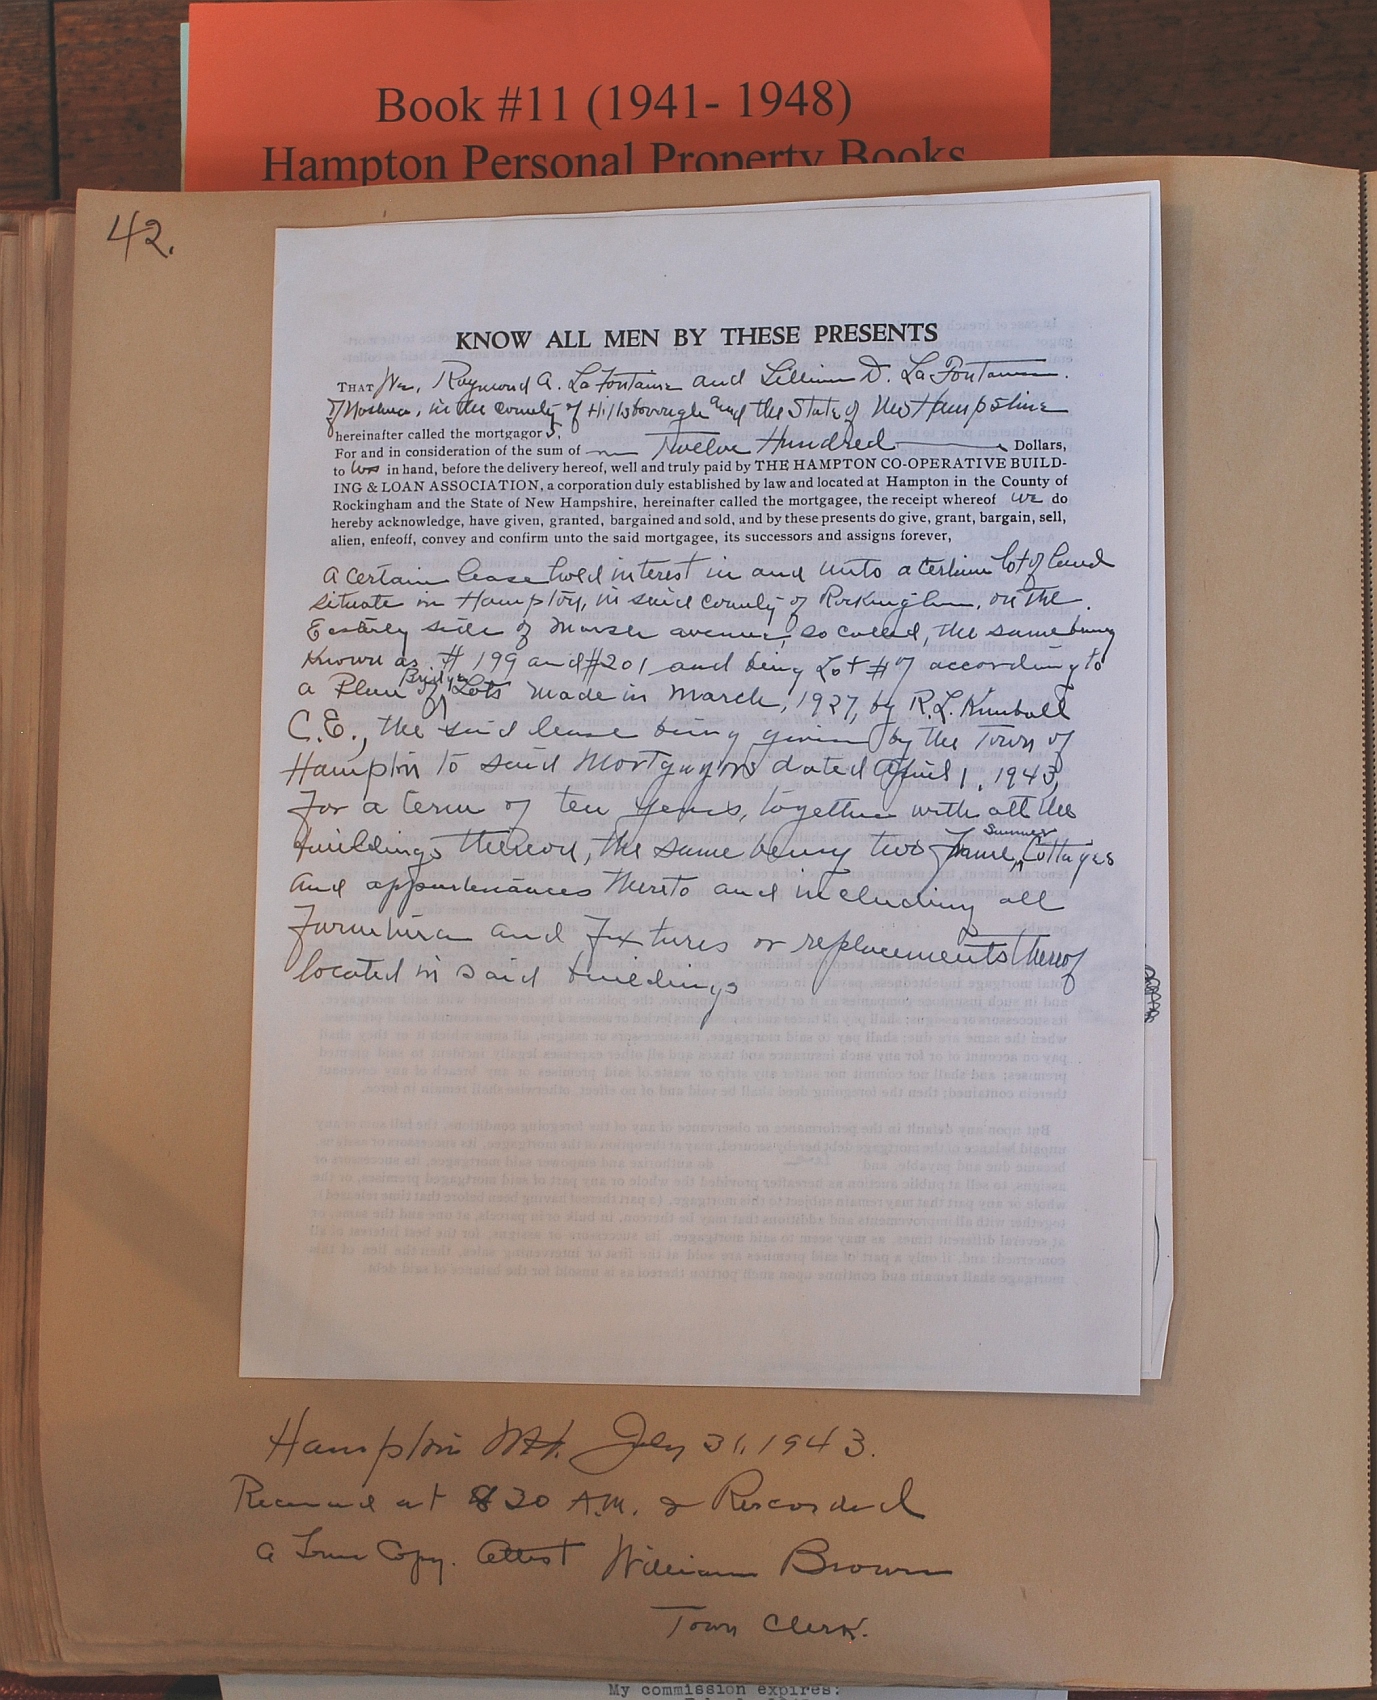 Book #11 (1941- 1948)
Hampton Personal Property Books
42.
KNOW ALL MEN BY THESE PRESENTS
THAT We, Raymond A. La Fontaine and Lillian D. La Fontaine.
of Nashua, in the County of Hillsborough and the State of New Hampshire
hereinafter called the mortgagors,
For and in consideration of the sum of Twelve Hundred Dollars,
to us in hand, before the delivery hereof, well and truly paid by THE HAMPTON CO-OPERATIVE BUILD-
ING & LOAN ASSOCIATION, a corporation duly established by law and located at Hampton in the County of
Rockingham and the State of New Hampshire, hereinafter called the mortgagee, the receipt whereof we do
hereby acknowledge, have given, granted, bargained and sold, and by these presents do give, grant, bargain, sell,
alien, enfeoff, convey and confirm unto the said mortgagee, its successors and assigns forever,
a certain lease hold interest in and unto a certain lot of land
situate in Hampton, in said county of Rockingham, on the
Easterly side of avenue, so called, the same being
known as # 199 and #201 and being Lot #7 according to
a Plan of Lots made in March, 1927, by R.L. Kimball
C.E., the said lease being given by the Town of
Hampton to said Mortgagors dated April 1, 1943,
for a term of ten years, together with all the
buildings thereon, the same being two frame Summer Cottages
and appurtenances thereto and including all
Furniture and Fixtures or replacements thereof
located in said buildings
Hampton N.H. July 31, 1943.
Received at 8 30 A.M. & Recorded
a True Copy. Attest William Brown
Town Clerk.
My commission expires: